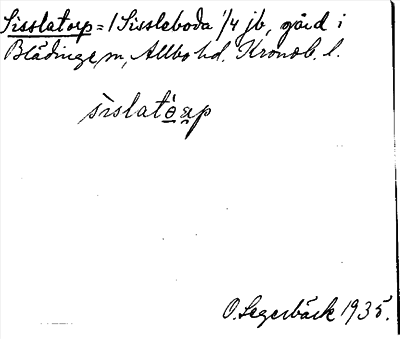 Sisslatorp = 1 Sissleboda 1/4 jb, gård i
Blädinge, m, Allbo hd. Kronob. l.
sìslató̱ɐ̱p
O. Segerbäck 1935.